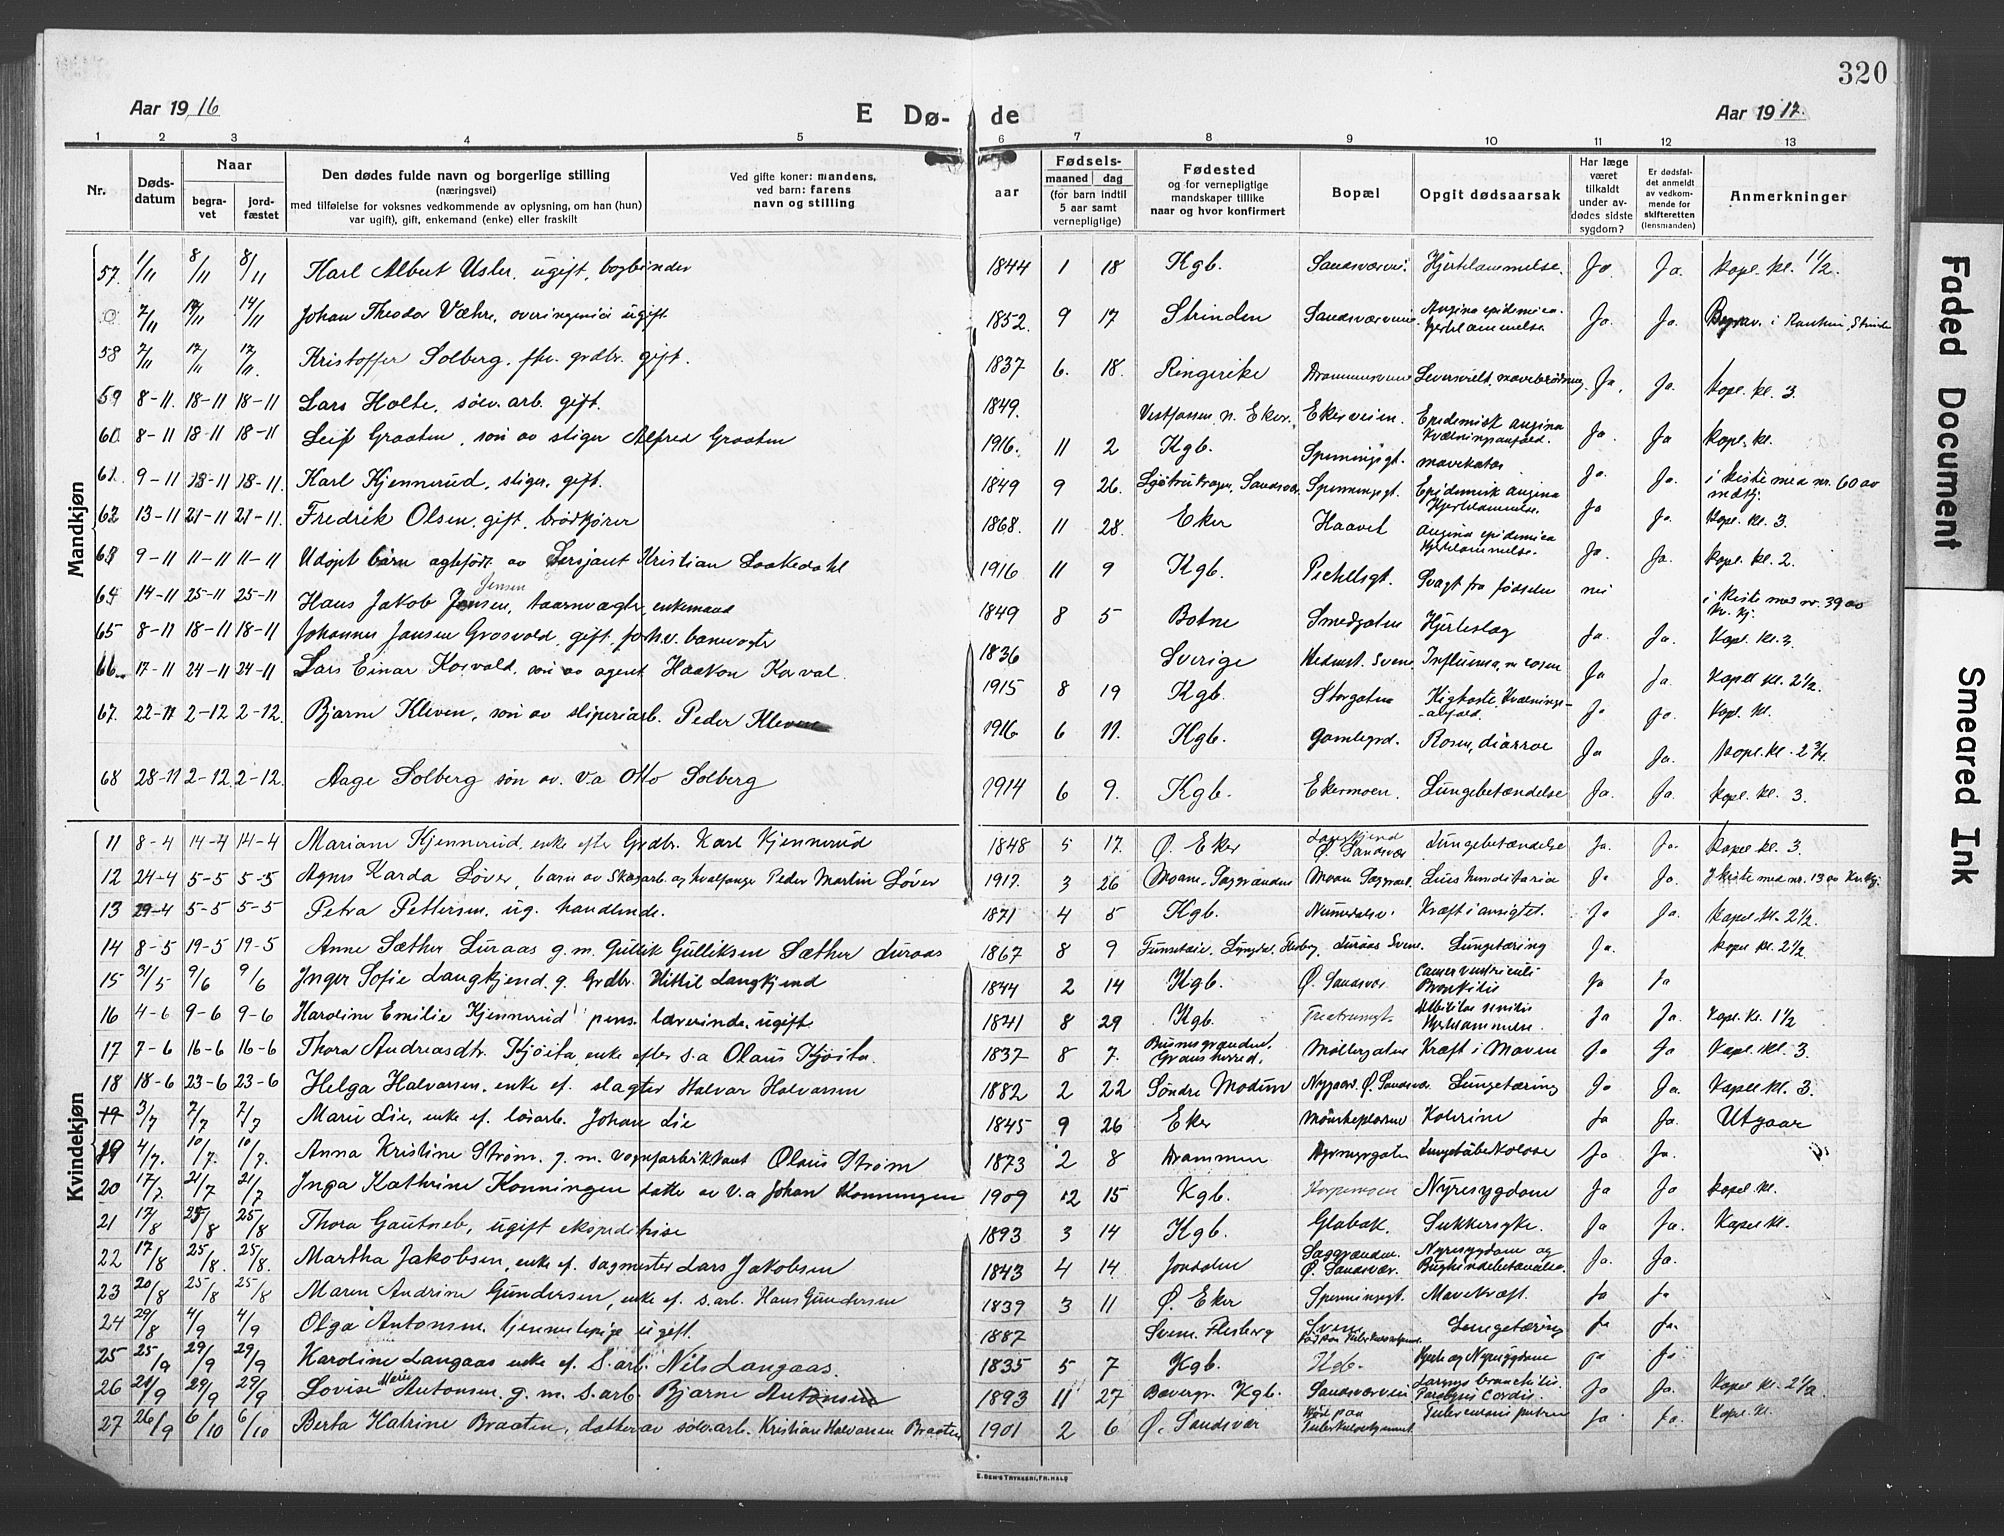 320
Aar 19 16
E Dø- de
Aar 19 17.
1 2 3 4 5 6 7 8 9 10 11 12 13
Nr.
Døds-datum
Naar
begra-vet
jord-fæstet
Den dødes fulde navn og borgerlige stilling
(næringsvei)
med tilføielse for voksnes vedkommende av oplysning, om han (hun)
var ugift), gift, enkemand (enke) eller fraskilt
Ved gifte koner: mandens,
ved barn: farens
navn og stilling
aar
Fødsels-
maaned dag
(for barn indtil
5 aar samt
vernepligtige)
Fødested
og for vernepligtige
mandskaper tillike
naar og hvor konfirmert
Bopæl
Opgit dødsaarsak
Har læge
været
tilkaldt
under av-
dødes sidste
sygdom?
Er dødsfal-
det anmeldt
av vedkom-
mende for
skifteretten
(lensmanden)
Anmerkninger
Mandkjøn
57. 1/11 8/11 8/11 Karl Albert Usler, ugift, bogbinder 1844 1 18 Kgb. Sandsværvei. Hjertelammelse. Ja Ja. Kapel. kl. 11/2.
0 7/11 17/11 14/11 Johan Theodor Væhre, overingeniør ugift 1852. 9 17 Strinden Sandsværvene Angina epidemica. Hjertelammelse Ja. Ja. Begrav. i Strinden
58 7/11 17/11 17/11. Kristoffer Solberg, fhv. grdbr. gift. 1837 6. 18. Ringerike Drammensvene Ja, Ja. Kapel. kl. 3.
59 8-11. 18-11 18-11 Lars Holte, sølv.arb. gift. 1849. Vestfossen, n. Eker. Ekerveien. Epidemisk angina Kvælningsanfald. Ja. Ja Kapel. kl.
60 8-11 18-11 18-11 Leif Graaten, søn av stiger Alfred Graaten 1916. 11 2 Kgb. Spenningsgt. mavekatar Ja. Ja. i kiste med nr. 60 av
61. 9-11 18-11 18-11. Karl Kjennerud, stiger, gift. 1849 9 26. Sandsvær Spenningsgt. Epidemisk angina Hjertelammelse. Ja Ja. Kape. kl. 3.
62 13-11 21-11 21-11. Fredrik Olsen, gift, brødkjører 1868. 11 28. Eker Haavet Angina epidemica Hjertelammelse. Ja. Ja. Kapel. kl. 2.
63 9-11 11-11 11-11 Udøpt barn av Sersjant Kristian Laakedahl 1916 11 9 Kgb. Pechelsgt. Svagt fra fødselen nei i kiste med nr. 39 av
64 14-11 25-11 25-11 Hans Jakob Jensen, Jensen taarnvægter enkemand 1849 8 5 Botne Smedgaten Hjerteslag Ja. Ja. Kapel. kl. 3.
65 8-11 18-11 18-11 Johannes Jansen Grosvold, gift, forhv. banevogter 1836 Sverige Hedenst. Svene Influensa, Ja Ja. Kapel kl. 2 1/2.
66 17-11 24-11 24-11 Lars Einar Korvald, søn av agent Haakon Korval. 1915 8 19 Kgb. Storgaten Kighoste Kvælnings-anfald. Ja Ja. Kapl. kl.
67. 22-11 2-12 2-12. Bjarne Kleven, søn av sliperiarb. Peder Kleven 1916 6 11. Kgb. Gamlegrd. Rosen, diarroe Ja Ja. Kapel. kl. 2 3/4.
68 28-11 2-12. 2-12. Aage Solberg søn av. v.a Otto Solberg 1914 6 9. Kgb. Ekermoen. Lungebetændelse Ja. Ja. Kapl. kl. 3.
Kvindekjøn
11 8-4 14-4 14-4 Mariane Kjennerud, enke efter Grdbr. Karl Kjennerud 1848 5 17. Ø. Eker Langkjend Ø. Sandsvær Lungebetændelse Ja. Ja. Kapel kl. 3.
12 24-4 5-5 5-5 Agnes Karda Løver, barn av Skogarb. og hvalfanger Peder Martin Løver 1917. 3 26 Moane, Saggrænden Moane Saggrænd. Lues hereditaria Ja Ja. I kiste med nr. 13 av
13 29-4 5-5 5-5 Petra Pettersen, ug. handlende. 1871 4 5 Kgb. Numedalsv. Kræft i ansigtet. Ja Ja. Kapel. kl. 2 1/2.
14 8-5 19-5 19-5 Anne Sæther Luraas g.m. Gullik Gulliksen Sæther Luraas 1867 8 9 Lyngdal, Flesberg, Luraas Svene. Lungetæring Ja. Kapel kl. 2 1/2.
15 31/5 9/6 9/6 Inger Sofie Langkjend g. Grdbr. Kittil Langkjend 1844 2 14 Kgb. Ø. Sandsvær Cancer ventriculi Bronkitis Ja Ja
16 4-6 9-6 9-6 Karoline Emilie Kjennerud pens. lærerinde, ugift. 1841 8 29 Kgb. Debilitas senilis Hjertelammelse. Ja Ja. Kapel. kl. 1 1/2
17 7-6 16-6 16-6 Thora Andreasdtr. Kjøita, enke efter s.a Olaus Kjøita. 1837 8 7. Grans herred. Møllergaten Kræft i Maven Ja Ja Kapel. kl. 3.
18 18-6 23-6 23-6 Helga Halvorsen, enke ef. slagter Halvar Halvarsen 1882 2 22 Søndre Modum Nygaard, Ø. Sandsvær Lungetæring Ja Ja. Kapel kl. 3.
19 3/7 7/7 7/7 Marie Lie, enke ef. løsarb. Johan Lie 1845 9 26 Eker Kolerine Ja Ja. Utgaar
19 4/7. 10/7. 10/7. Anna Kristine Strøm. g.m. vognfabrikkant Olaus Strøm 1873 2 8 Drammen Lungetuberkolose Ja Ja.
20 17/7 21/7 21/7 Inga Kathrine Konningen datter av v.a Johan Konningen 1909 12 15 Kgb. Nyresygdom Ja Ja Kapel kl.
21 17/8 25/8 25/8 Thora Gautneb, ugift ekspeditrise 1893 3 14 Kgb. Glabak Sukkersyke. Ja Ja. Kapel kl.
22 17/8 25/8. 25/8. Martha Jakobsen, enke ef. sagmester Lars Jakobsen 1843 4 14 Jondalen Saggrænden. Ø. Sandsvær. Nyresygdom og Bughindebetændelse. Ja. Ja.
23 20/8 25/8 25/8 Maren Andrine Gundersen, enke ef. s.arb. Hans Gundersen 1839 3 11 Ø. Eker Spenningsgt. Mavekræft. Ja Ja
24 29/8 4/9 4/9 Olga Antonsen, tjenestepige ugift. 1887 Svene Flesberg Svene Lungetæring Ja Ja.
25 25/9 29/9 29/9 Karoline Langaas enke ef. S.arb. Nils Langaas. 1835 5 7 Kgb. Kgb. Hjerte og Nyresygdom Ja Ja
26 21/9 29/9 29/9 Lovise Marie Antonsen. g.m. S.arb. Bjarne Antonsen 1893 11 27 Bævergr. Kgb. Sandsværveien Paralysis Cordis. Ja Ja. Kapel kl. 2 1/2.
27 26/9 6/10 6/10 Berta Katrine Braaten, datter av sølv.arb. Kristian Halvorsen Braaten 1901 2 6 Ø. Sandsvær Død paa Tuberkulosehjemmet. Ja Ja. Kapel. kl.
E. SEM'S TRYKKERI, FR.HALD
Faded Document
Smeared Ink